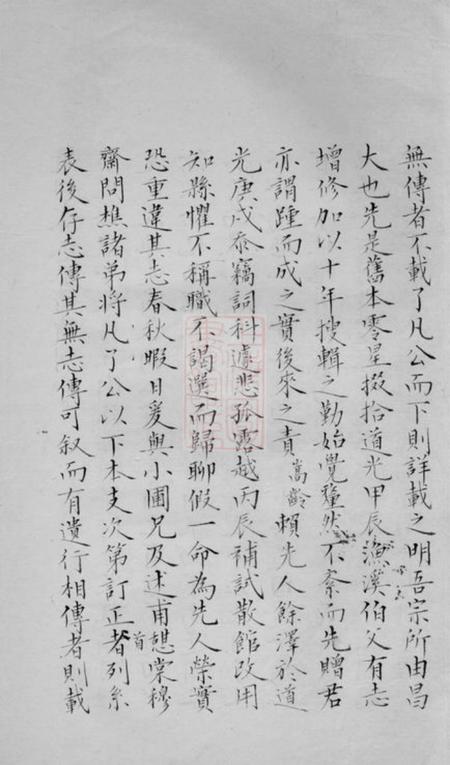 無傳者不載了凡公而下則詳載之明吾宗所由昌
大也先是舊本零星掇拾道光甲辰漁溪伯父有志
增修加以十年搜輯之勤始覺釐然不紊而先贈君
亦謂踵而成之實後來之責嵩齡賴先人餘澤於道
光庚戌忝竊詞科遽悲孤露越丙辰補試散館改用
知縣懼不稱職不謁選而歸聊假一命為先人榮實
恐重違其志春秋暇日爰與小圃兄及述甫憩棠穆
齋問樵諸弟將凡了公以下本支次第訂正者首列系
表後存志傳其無志傳可叙而有遺行相傳者則載